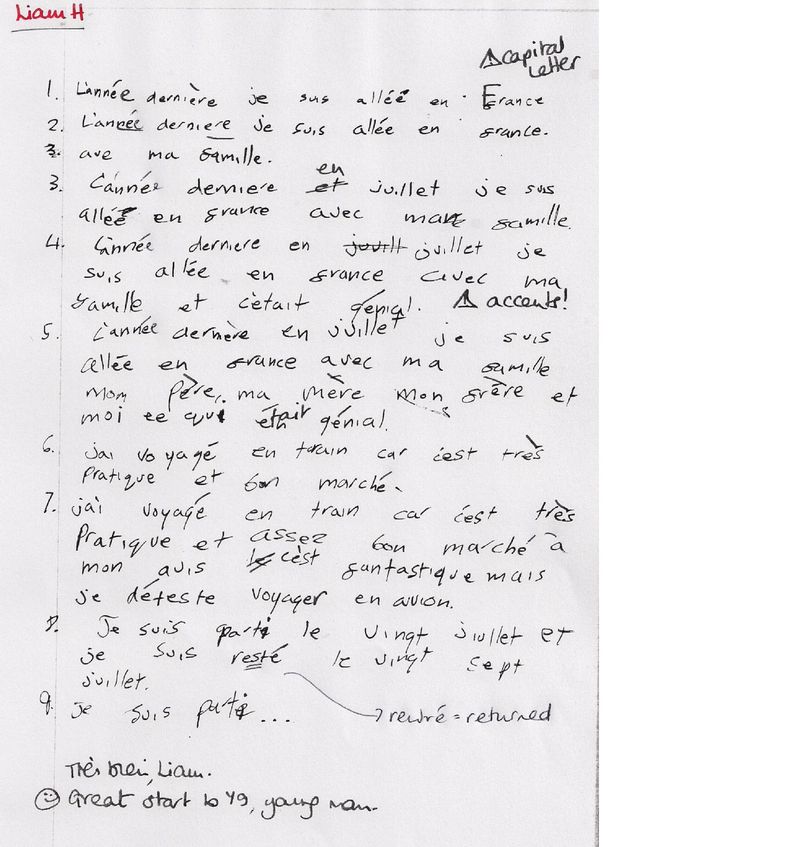 Liam H
⚠ capital
letter
1. L'année dernière je suis allée en France
2. L'année derniere je suis allée en france.
3. ave ma famille.
3. L'année derniere et en juillet je suis
allée en france avec ma famille.
4. L'année derniere en juillet je
suis allée en france avec ma
famille et c'était génial. ⚠ accents!
5. L'année dernère en juillet je suis
allée en france avec ma famille
mon père, ma mère mon frère et
moi ce qui était génial.
6. jai voyagé en train car c'est très
pratique et bon marché.
7. j'ai voyagé en train car c'est très
pratique et assez bon marché à
mon avis c'èst fantastique mais
je déteste voyager en avion.
8. Je suis parti le vingt juillet et
je suis resté le vingt sept
juillet.
9. je suis parti... → rentré = returned
Très bien, Liam.
☺ Great start to Y9, young man.